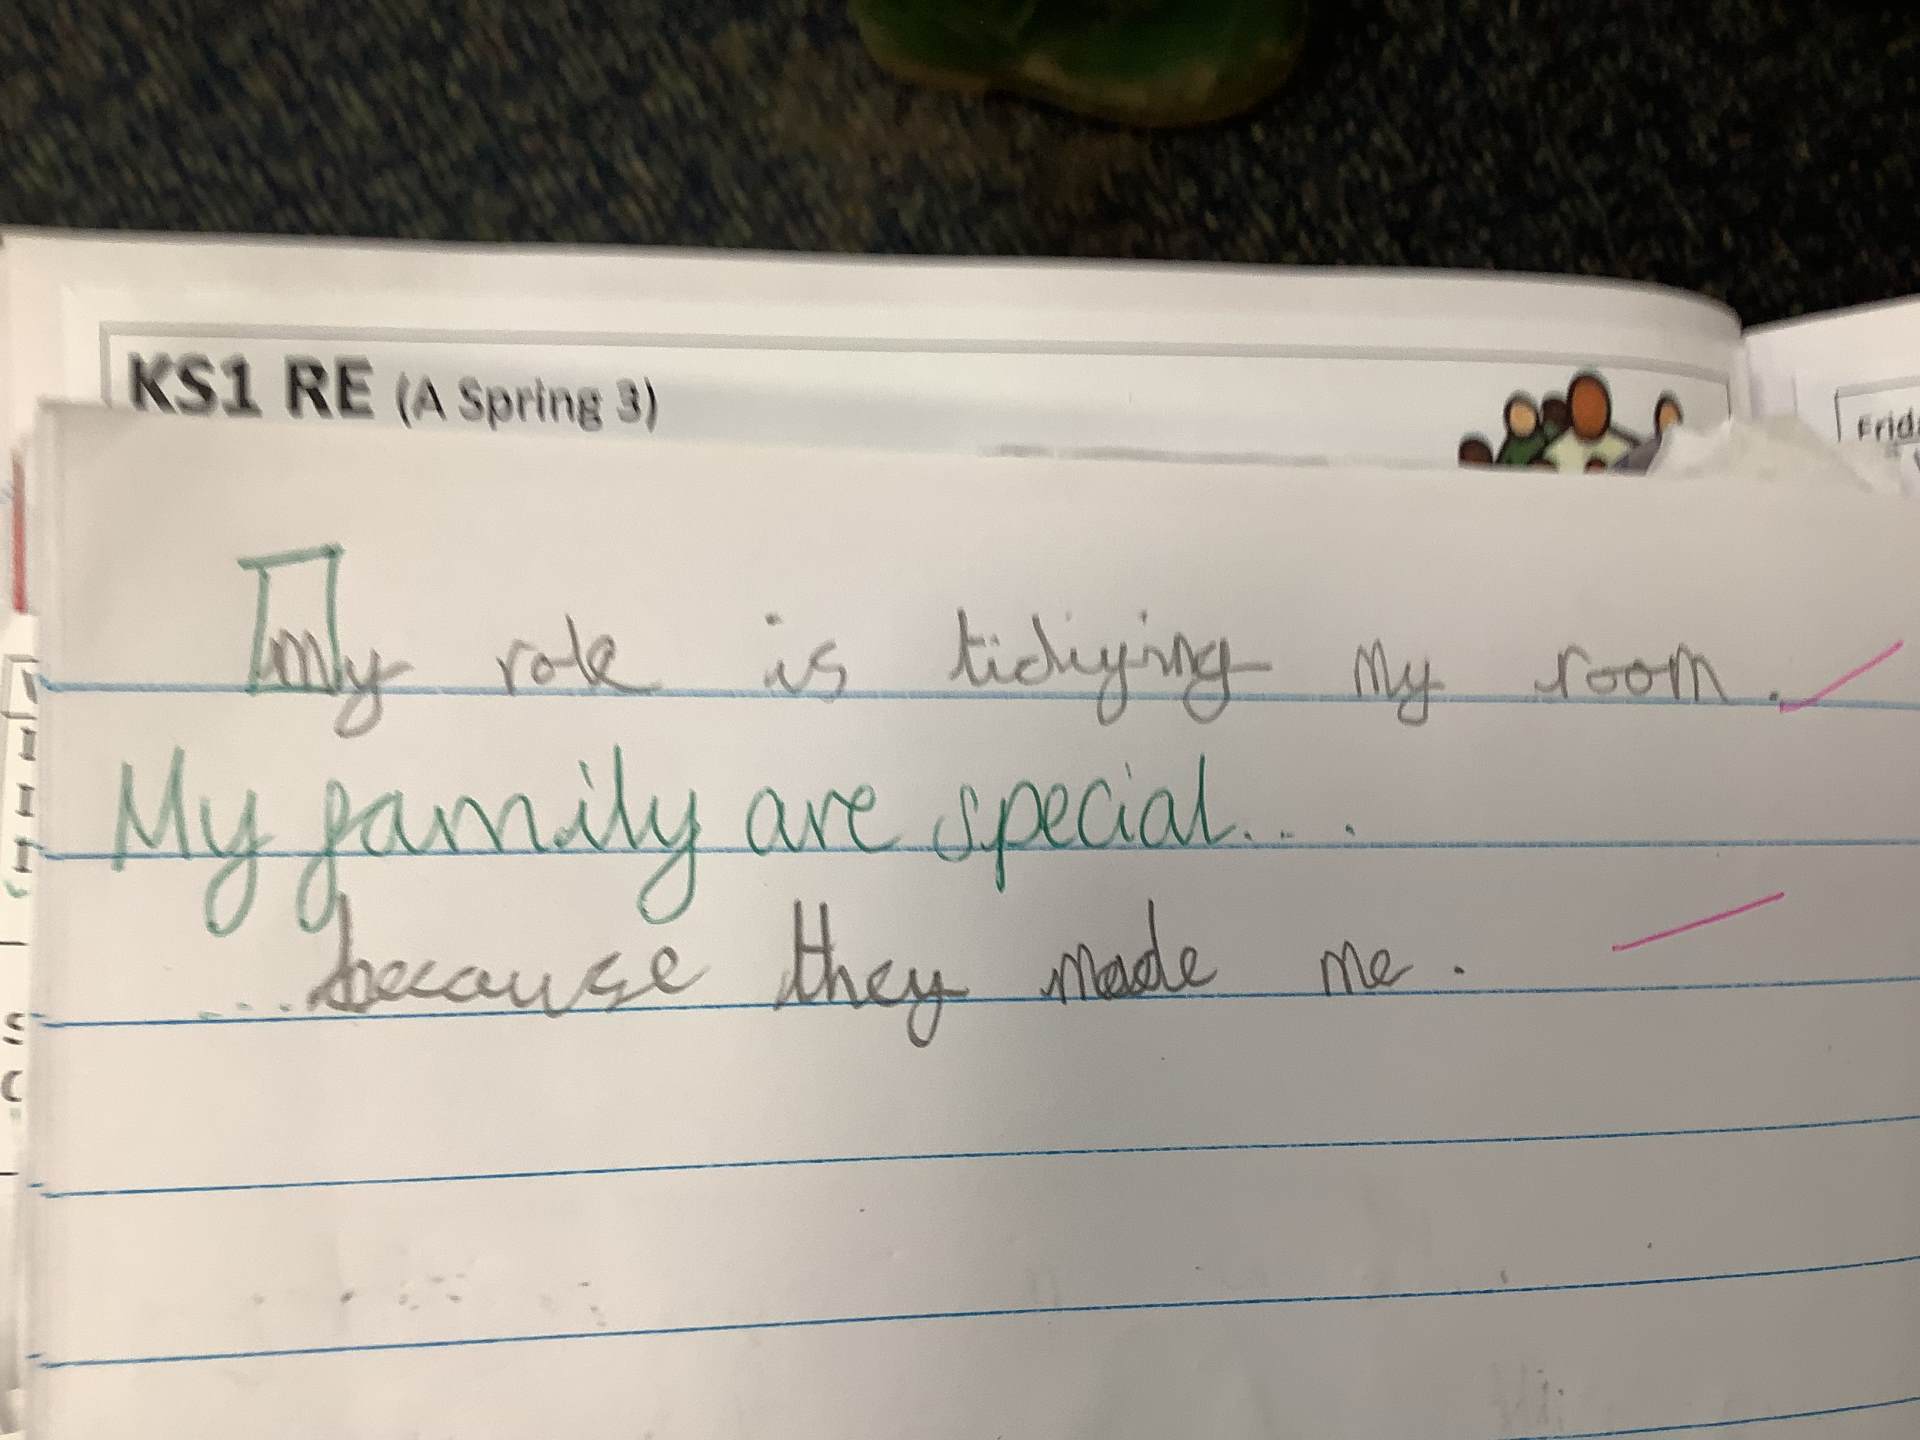 KS1 RE (A Spring 3)
my role is tidiying my room.
My family are special....
...because they made me.